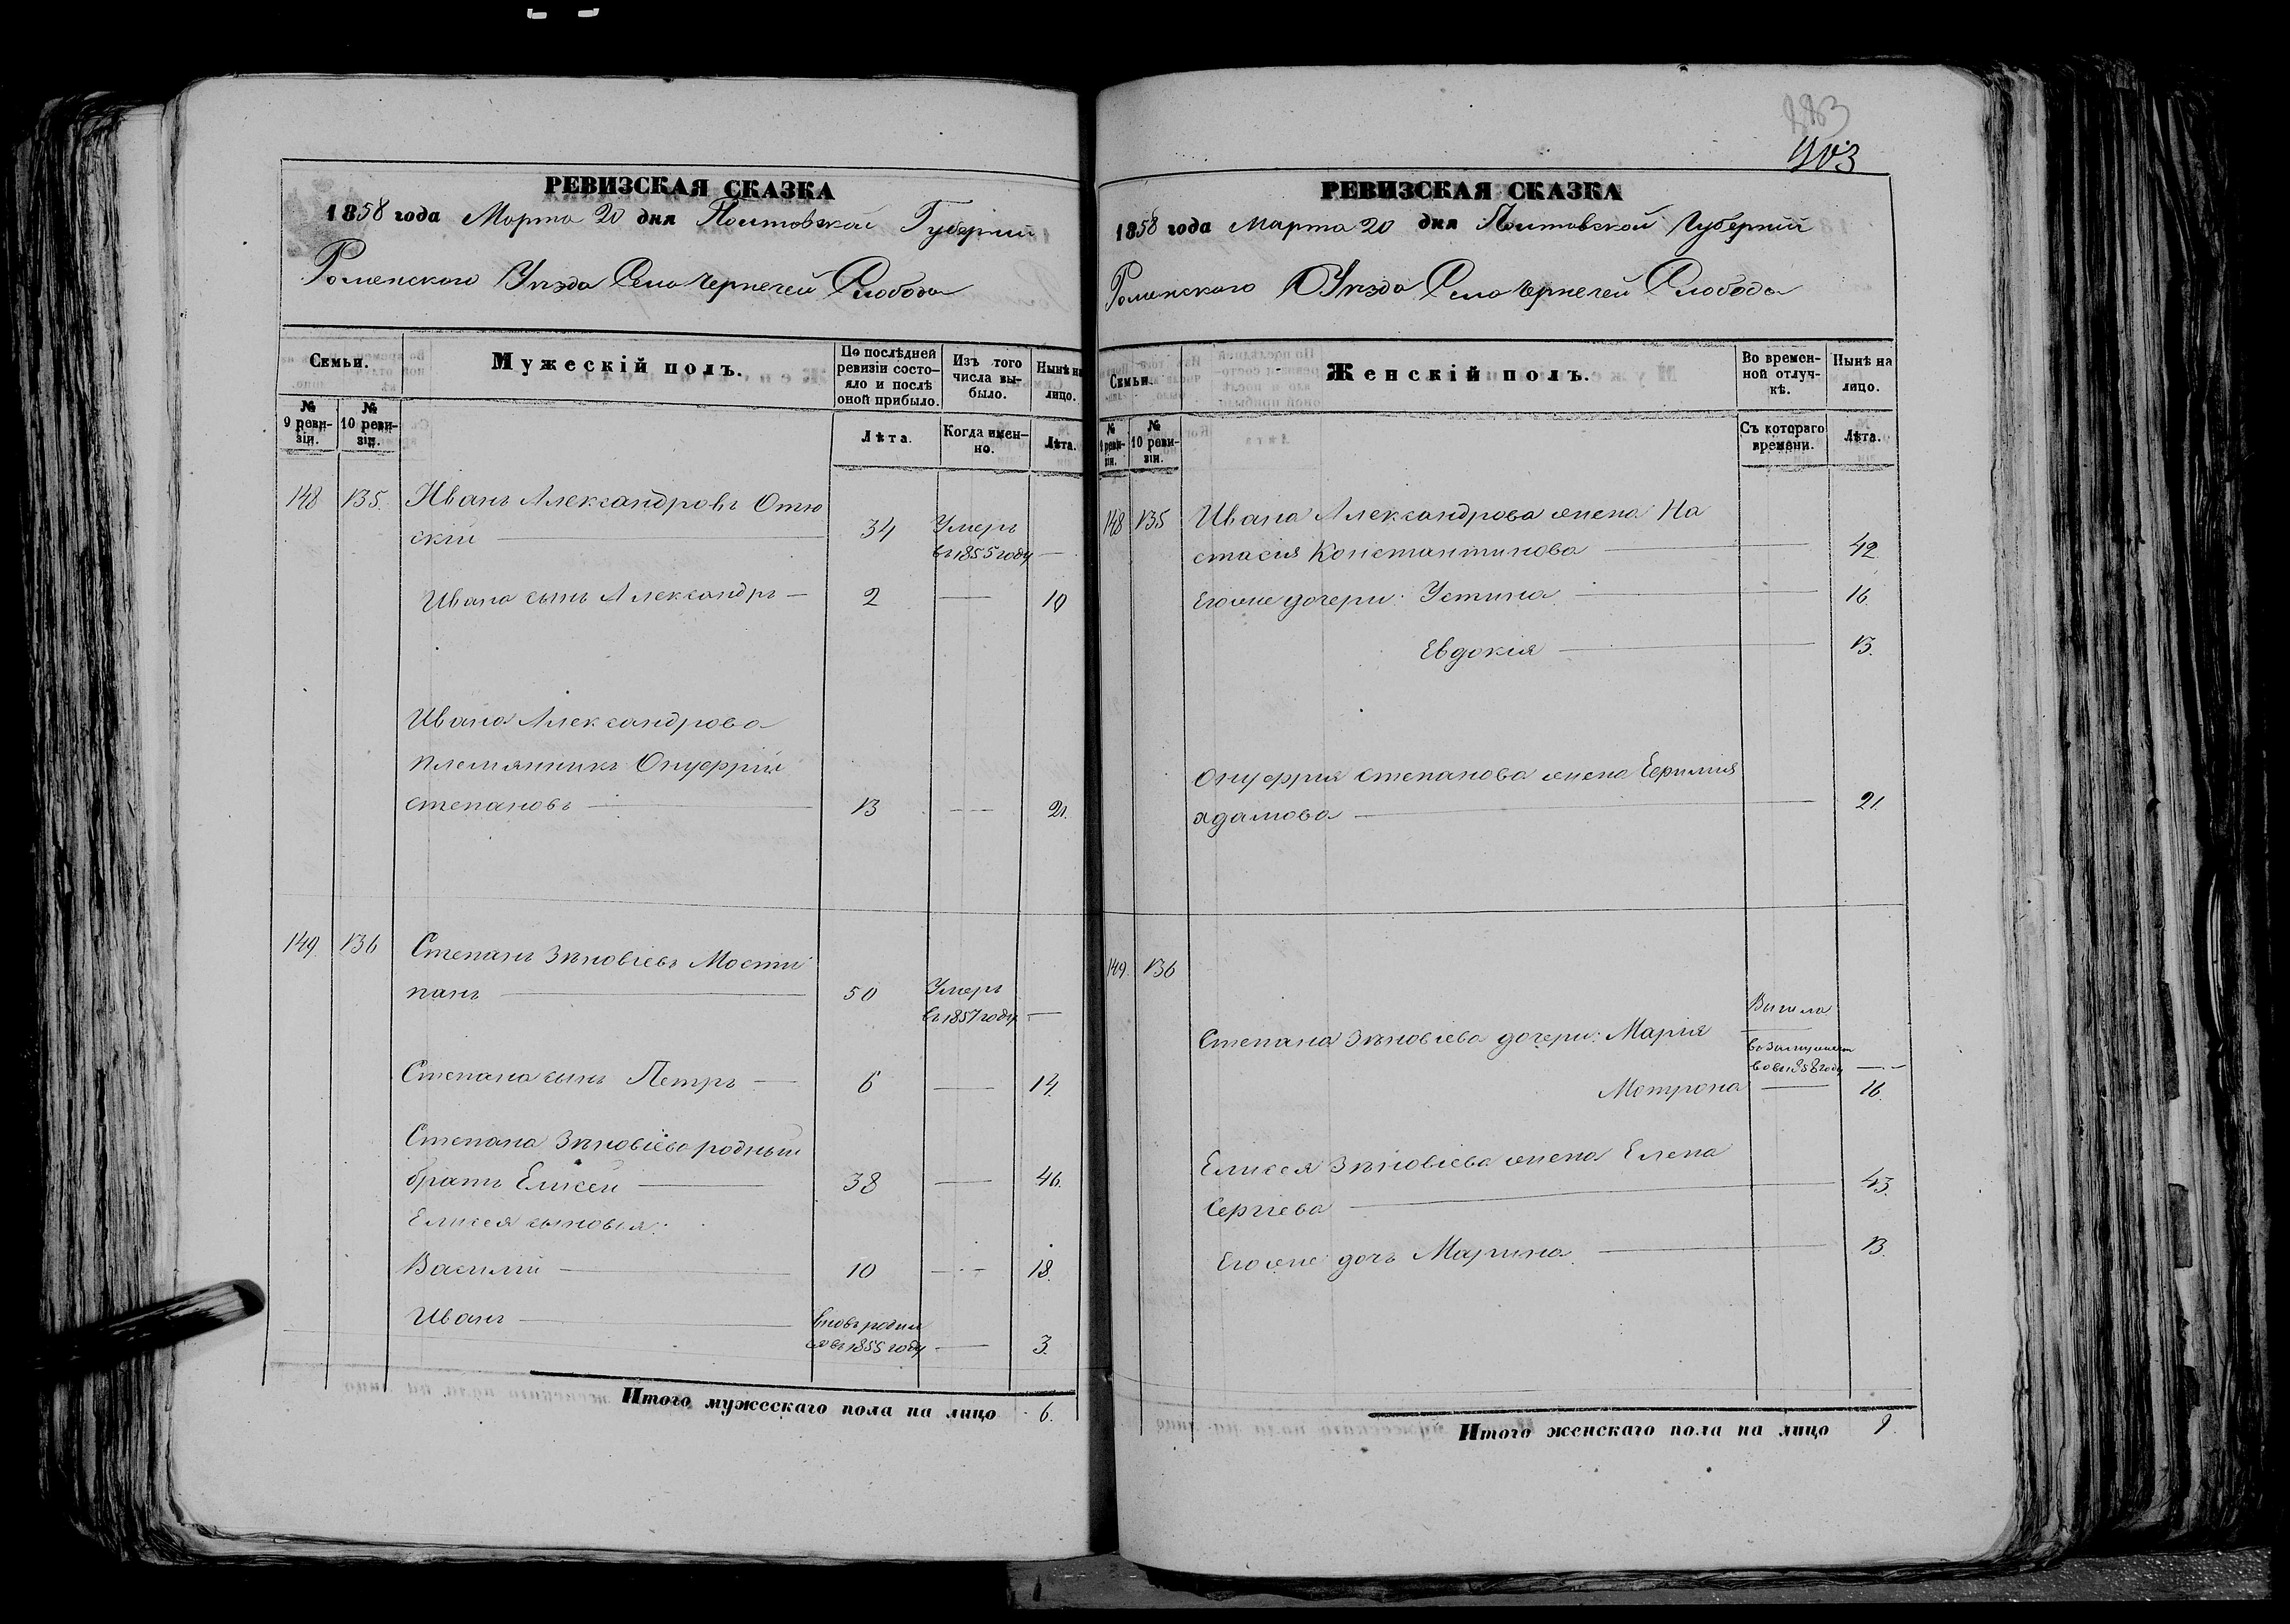 РЕВИЗСКАЯ СКАЗКА
1858 года Марта 20 дня Полтавской Губерніи
Роменского Уѣзда Село Чернечей Слобода
Семьи.
Мужескій полъ.
По послѣдней ревизіи состояло и послѣ оной прибыло.
Изъ того числа выбыло.
Нынѣ на лицо.
№ 9 ревизіи.
№ 10 ревизіи.
Лѣта.
Когда именно.
Лѣта.
148 135. Иванъ Александровъ Отю
скій 34 Умеръ
въ 1855 году
Ивана сынъ Александръ 2 10
Ивана Александрова
племянникъ Онуфрій
Степановъ 13 21.
149. 136 Степанъ Зѣновіевъ Мости
панъ 50 Умеръ
въ 1857 году
Степана сынъ Петръ 6 14.
Степана Зѣновіева родный
братъ Елисей 38 46.
Елисея сыновья:
Василій 10 18.
Иванъ вновь родил
ся въ 1855 году 3.
Итого мужескаго пола на лицо 6.
403
РЕВИЗСКАЯ СКАЗКА
1858 года Марта 20 дня Полтавской Губерніи
Роменского Уѣзда Село Чернечей Слобода
Семьи.
Женскій полъ.
Во временной отлучкѣ.
Нынѣ на лицо.
№ 9 ревизіи.
№ 10 ревизіи.
Съ котораго времени.
Лѣта.
148 135 Ивана Александрова жена На
стасія Константинова 42
Его же дочери: Устина 16.
Евдокія 13.
Онуфрія Степанова жена Ефимія
Адамова 21
149. 136
Вышла
Степана Зѣновіева дочери: Марія
въ замужест
во въ 1858 году
Мотрона 16.
Елисея Зѣновіева жена Елена
Сергіева 43.
Его же дочь Марина 13.
Итого женскаго пола на лицо